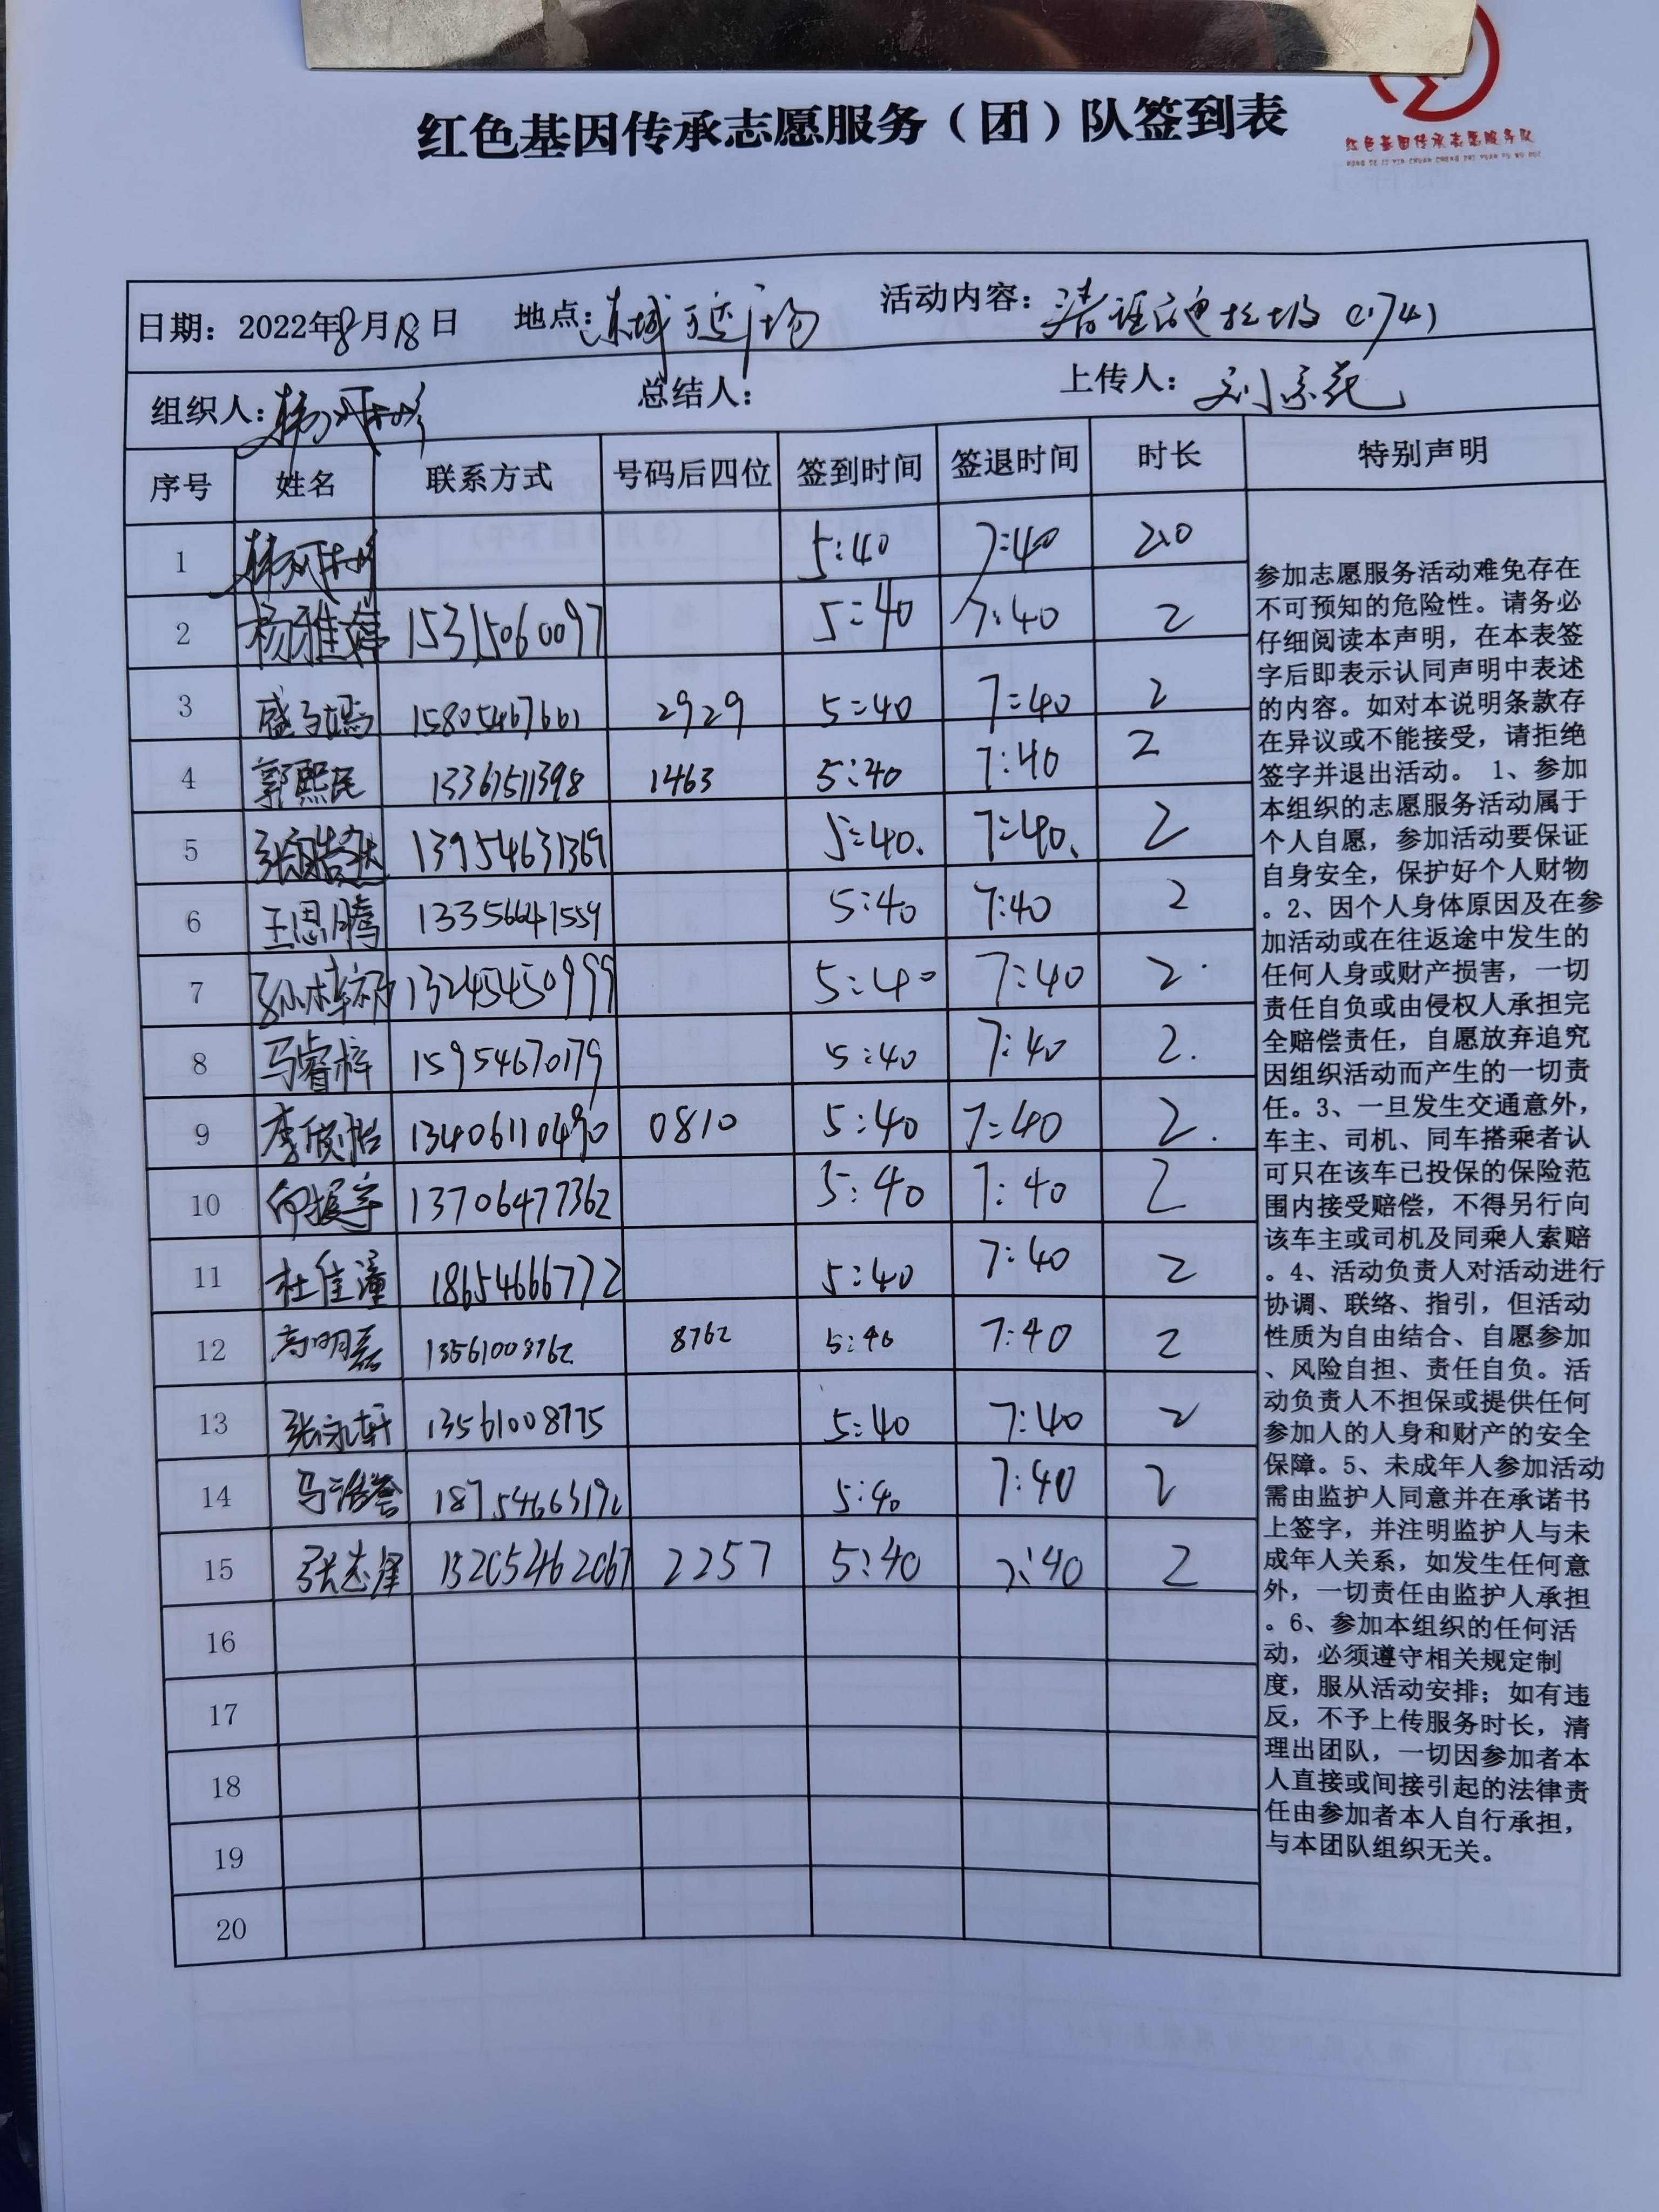 红色基因传承志愿服务（团）队签到表
红色基因传承志愿服务队
日期：2022年8月18日 地点： 活动内容：
组织人： 总结人： 上传人：
序号 姓名 联系方式 号码后四位 签到时间 签退时间 时长 特别声明
1 5:40 7:40 2.0
2 杨雅婷 15315060097 5:40 7:40 2
3 15805467661 2929 5:40 7:40 2
4 郭熙民 13361511398 1463 5:40 7:40 2
5 13954631369 5:40. 7:40. 2
6 王思腾 13356641559 5:40 7:40 2
7 13245450999 5:40 7:40 2
8 马睿梓 15954670179 5:40 7:40 2.
9 李欣怡 13406110490 0810 5:40 7:40 2.
10 13706477362 5:40 7:40 2
11 杜佳潼 18654666772 5:40 7:40 2
12 高明磊 13561008762 8762 5:40 7:40 2
13 张永轩 13561008775 5:40 7:40 2
14 马浩誉 5:40 7:40 2
15 张志泽 15205462067 2257 5:40 7:40 2
16
17
18
19
20
参加志愿服务活动难免存在
不可预知的危险性。请务必
仔细阅读本声明，在本表签
字后即表示认同声明中表述
的内容。如对本说明条款存
在异议或不能接受，请拒绝
签字并退出活动。 1、参加
本组织的志愿服务活动属于
个人自愿，参加活动要保证
自身安全，保护好个人财物
。2、因个人身体原因及在参
加活动或在往返途中发生的
任何人身或财产损害，一切
责任自负或由侵权人承担完
全赔偿责任，自愿放弃追究
因组织活动而产生的一切责
任。3、一旦发生交通意外，
车主、司机、同车搭乘者认
可只在该车已投保的保险范
围内接受赔偿，不得另行向
该车主或司机及同乘人索赔
。4、活动负责人对活动进行
协调、联络、指引，但活动
性质为自由结合、自愿参加
、风险自担、责任自负。活
动负责人不担保或提供任何
参加人的人身和财产的安全
保障。5、未成年人参加活动
需由监护人同意并在承诺书
上签字，并注明监护人与未
成年人关系，如发生任何意
外，一切责任由监护人承担
。6、参加本组织的任何活
动，必须遵守相关规定制
度，服从活动安排；如有违
反，不予上传服务时长，清
理出团队，一切因参加者本
人直接或间接引起的法律责
任由参加者本人自行承担，
与本团队组织无关。